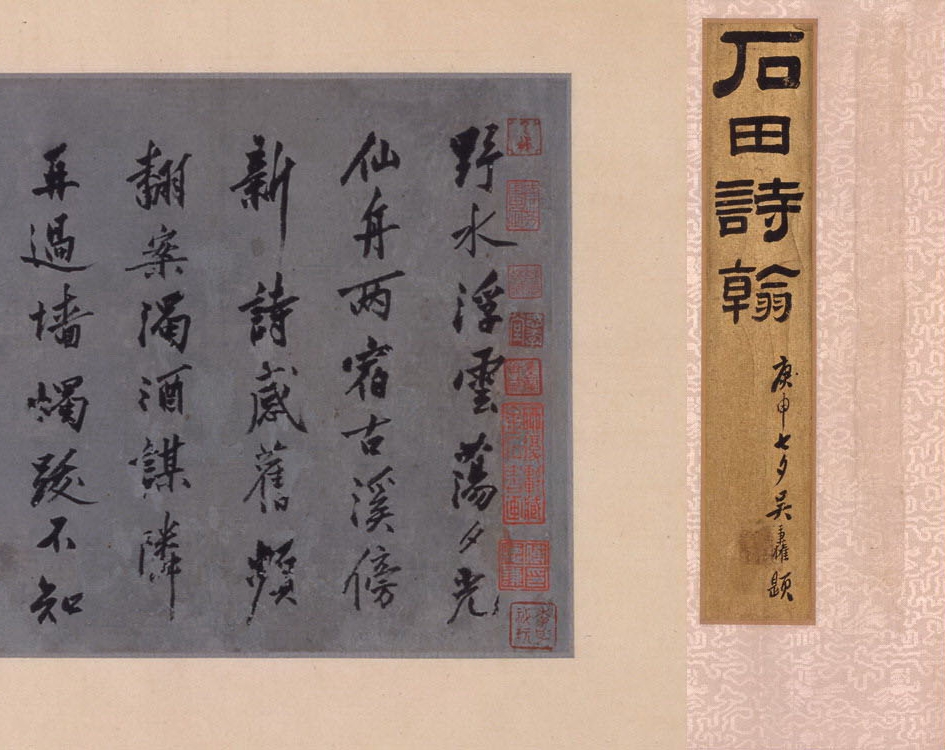 石田詩翰
庚申七夕吳題
野水浮雲蕩夕光
仙舟两宿古溪傍
新詩感舊頻
翻案濁酒謀隣
再過墻燭跋不知